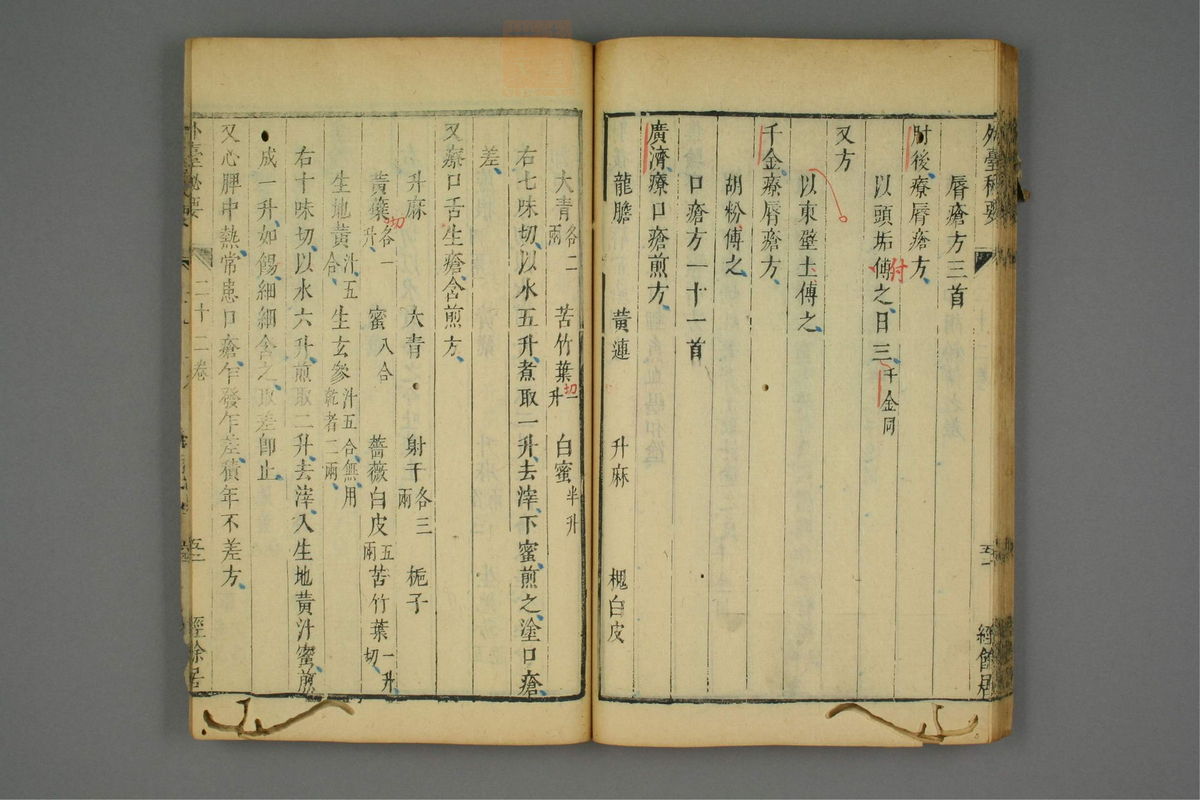 外臺秘要
唇瘡方三首
肘後療唇瘡方
以頭垢傅之日三千金同
附
又方
以東壁土傅之
千金療唇瘡方
胡粉傅之
口瘡方一十一首
廣濟療口瘡煎方
龍膽 黃連 升麻 槐白皮
大青各二兩 苦竹葉一升切 白蜜半升
右七味切以水五升煮取二升去滓下蜜煎之塗口瘡
差
又療口舌生瘡含煎方
升麻 大青 射干各三兩 梔子
黃蘗各一升切 蜜八合 薔薇白皮五兩 苦竹葉一升切
生地黃汁五合 生玄參汁五合無用乾者二兩
右十味切以水六升煎取二升去滓入生地黃汁蜜煎
成一升如餳細細含之取差即止
又心脾中熱常患口瘡乍發乍差積年不差方
外臺秘要 二十二卷 五二 經餘居